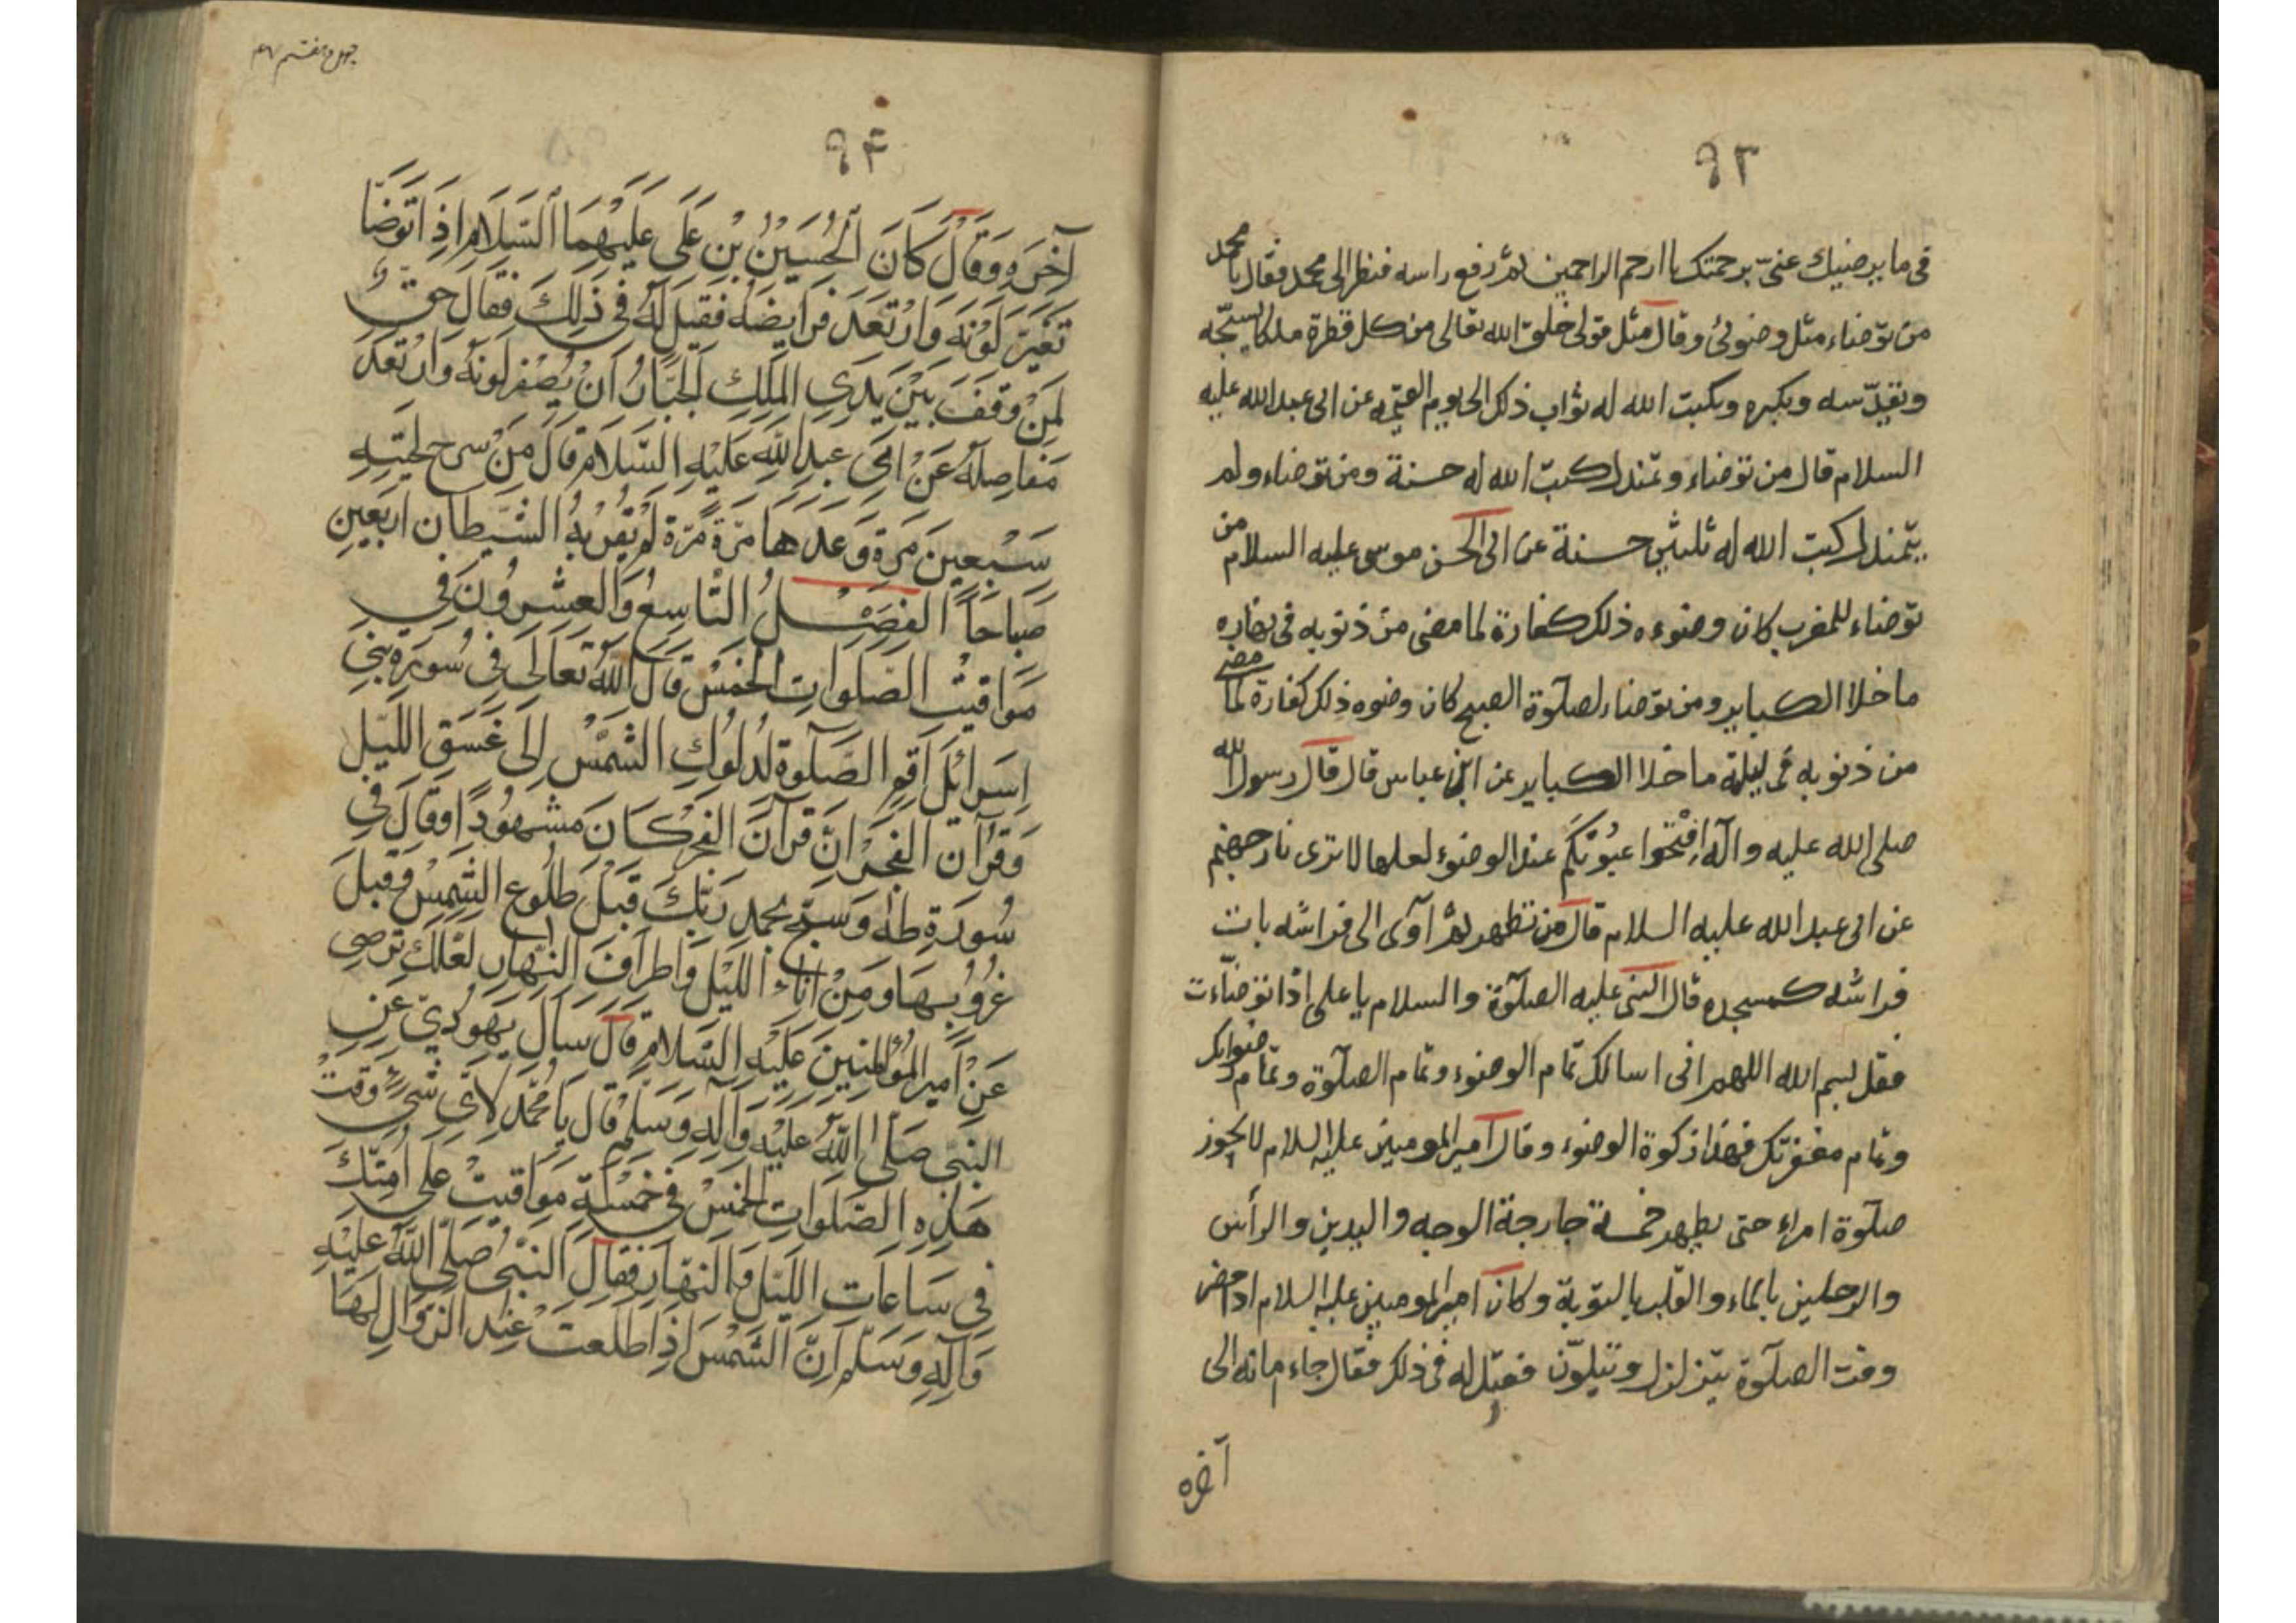 ٩٣
فى ما يرضيك عنى برحمتك يا ارحم الراحمين ثم رفع راسه فنظر الى محمد فقال يا محمد
من توضاء مثل وضوئى وقال مثل قولى خلق الله تعالى من كل قطرة ملكا يسبحه
ويقدّسه ويكبره ويكتب الله له ثواب ذلك الى يوم القيمه عن ابى عبد الله عليه
السلام قال من توضاء وتمندل كتب الله له حسنة ومن توضاء ولم
يتمندل كتب الله له ثلثين حسنة عن ابى الحسن موسى عليه السلام من
توضاء للمغرب كان وضوءه ذلك كفارة لما مضى من ذنوبه فى نهاره
ما خلا الكباير ومن توضاء لصلوة الصبح كان وضوه ذلك كفارة لما مضى
من ذنوبه فى ليلة ما خلا الكباير عن ابن عباس قال قال رسول الله
صلى الله عليه وآله اِفْتَحُوا عيُونكَم عند الوضوء لعلها لا ترى نار جهنم
عن ابى عبد الله عليه السلام قال من تطهر ثم آوى الى فراشه بات
فراشه كمسجده قال النبى عليه الصلوة والسلام يا على اذا توضاءت
فقل بسم الله اللهم انى اسالك تمام الوضوء وتمام الصلوة وتمام رضوانك
وتمام مغفرتك فهذا زكوة الوضوء وقال امير المومنين عليه السلام لا يجوز
صلوة امراء حتى يطهر خمسة جارحة الوجه واليدين والرأس
والرجلين بالماء والقلب بالتوبة وكان امير المومنين عليه السلام اذا حضر
وقت الصلوة يتزلزل ويتلوّن فقيل له فى ذلك فقال جاء امانه الى
آخره
چهل و هفتم ٤٧
٩٤
آخِرَهِ وَقَالَ كَانَ الْحُسَيْنُ بْنِ عَلَى عَلَيْهِمَا السَّلَامِ اِذَا تَوَضّا
تَغَيّرَ لَوْنَهُ وَارْتَعَدَ فَرَايِضَهُ فَقِيْلَ لَهُ فى ذَلِكَ فَقَالَ حَقٌّ
لِمَنْ وَقَفَ بَيْنَ يَدَىِ المَلِكِ الْجَبَّارُ اَنْ يُصْفِرَ لَونَهُ وَارْتَعَدَ
مَفَاصِلَهُ عَنْ ابى عَبدِ اللهِ عَلَيْهِ السَّلَامِ قَالَ مَنْ سرح لحيَتِه
سَبْعِينَ مَرَةً وَعَدهَا مَرّةً مَرّةً لَمْ يَقْرُبهُ الشَّيْطَان اَربَعِينِ
صَبَاحَاً الفَصْلُ التّاسِعُ وَالعِشْرُونَ فِي
مَوَاقيتُ الصَّلَوَاتِ الْخَمْسُ قَالَ اللهُ تَعَالَى فِى سُورَةِ بَنِى
اِسرَائِلَ اَقِمِ الصَّلَوةَ لِدُلُوكِ الشّمْسُ اِلَى غَسَقِ اللَّيْلِ
وَقُرْآنَ الفَجْرِ اِنَّ قُرآنَ الفَجْرَ كَانَ مَشْهُودًا وَقَالَ فِى
سُورَةِ طهٰ وَسَبّح بحمدِ رَبِّكَ قَبْلَ طُلُوعِ الشَّمْسِ وَقَبلَ
غُرُوبِهَا وَمِنْ اناء اللَيْلَ وَاطرافَ النّهَارِ لَعَلّكَ تَرضى
عَنْ اَمِيرِ المُؤْمِنِينَ عَلَيْهِ السَّلَامِ قَالَ سَاَلَ يَهُودِيّ عَنِ
النّبِى صَلّى اللهُ عَلَيْهِ وَآلِهِ وَسَلّمْ قَالَ يَا مُحَمّد لِاَىّ شَىْءٍ وَقّتَ
هَذِهِ الصَّلَوَاتِ الْخَمْسْ فِى خَمْسَةِ مَوَاقيتْ عَلَى اُمّتِكَ
فِى سَاعَاتِ اللَيْل وَالنَهارِ فَقَالَ النَّبِىُ صَلّى اللهُ عَلَيْهِ
وَآلِهِ وَسَلّمْ اِنّ الشّمْسَ اِذَا طَلَعَتْ عِنْدَ الزّوَالِ لَهَا